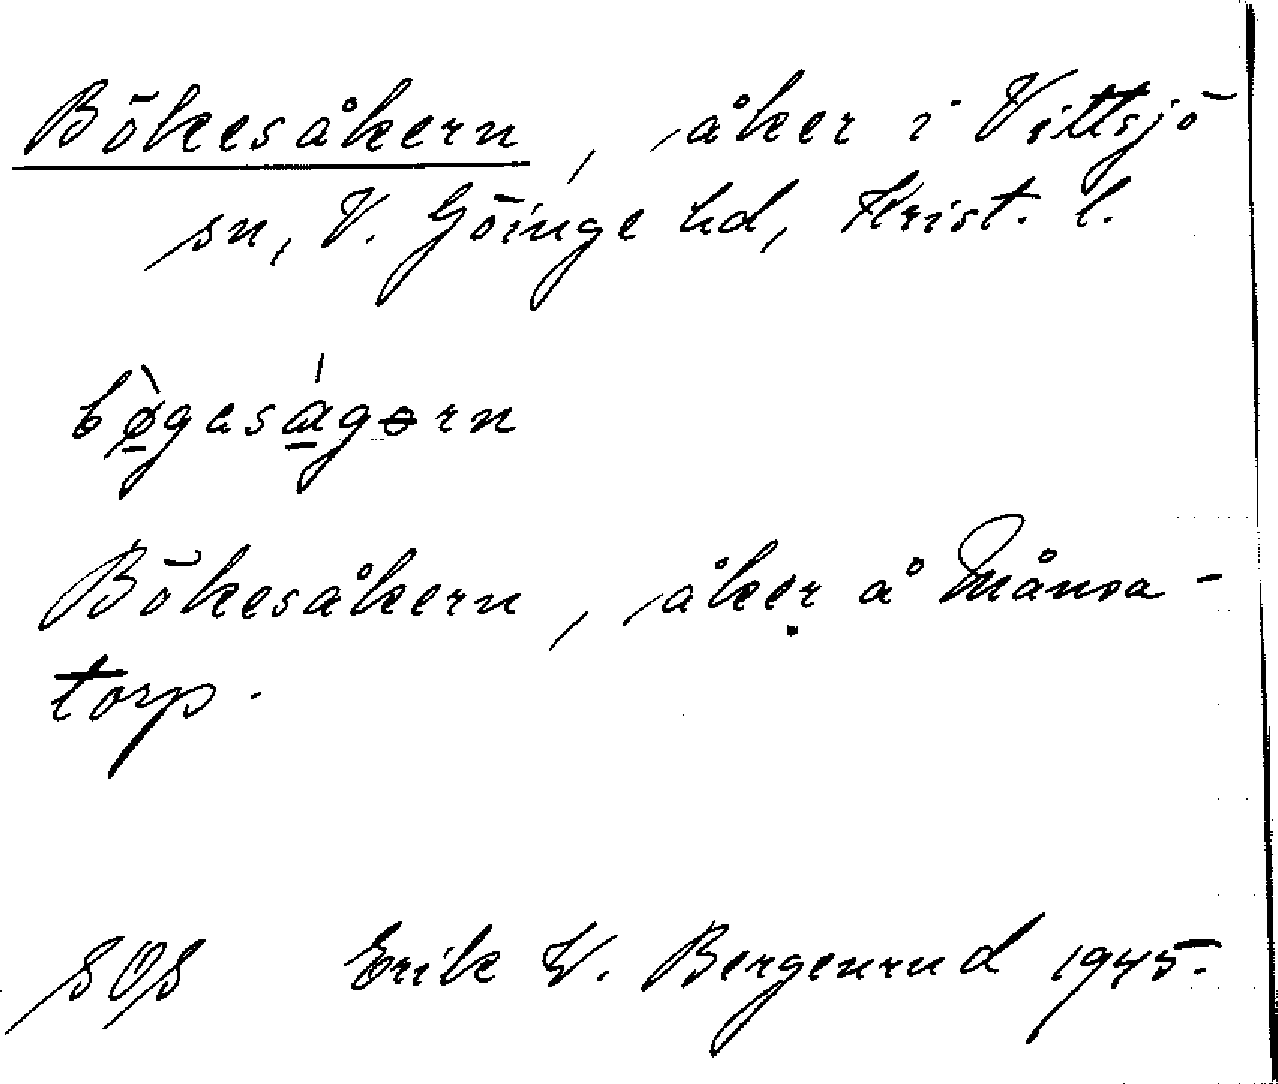 Bökesåkern, åker i Vittsjö
sn, V. Göinge hd, Krist. l.
bø̀gaságərn
Bökesåkern, åker å Månsa-
torp.
SOS Erik W. Bergenrud 1945.